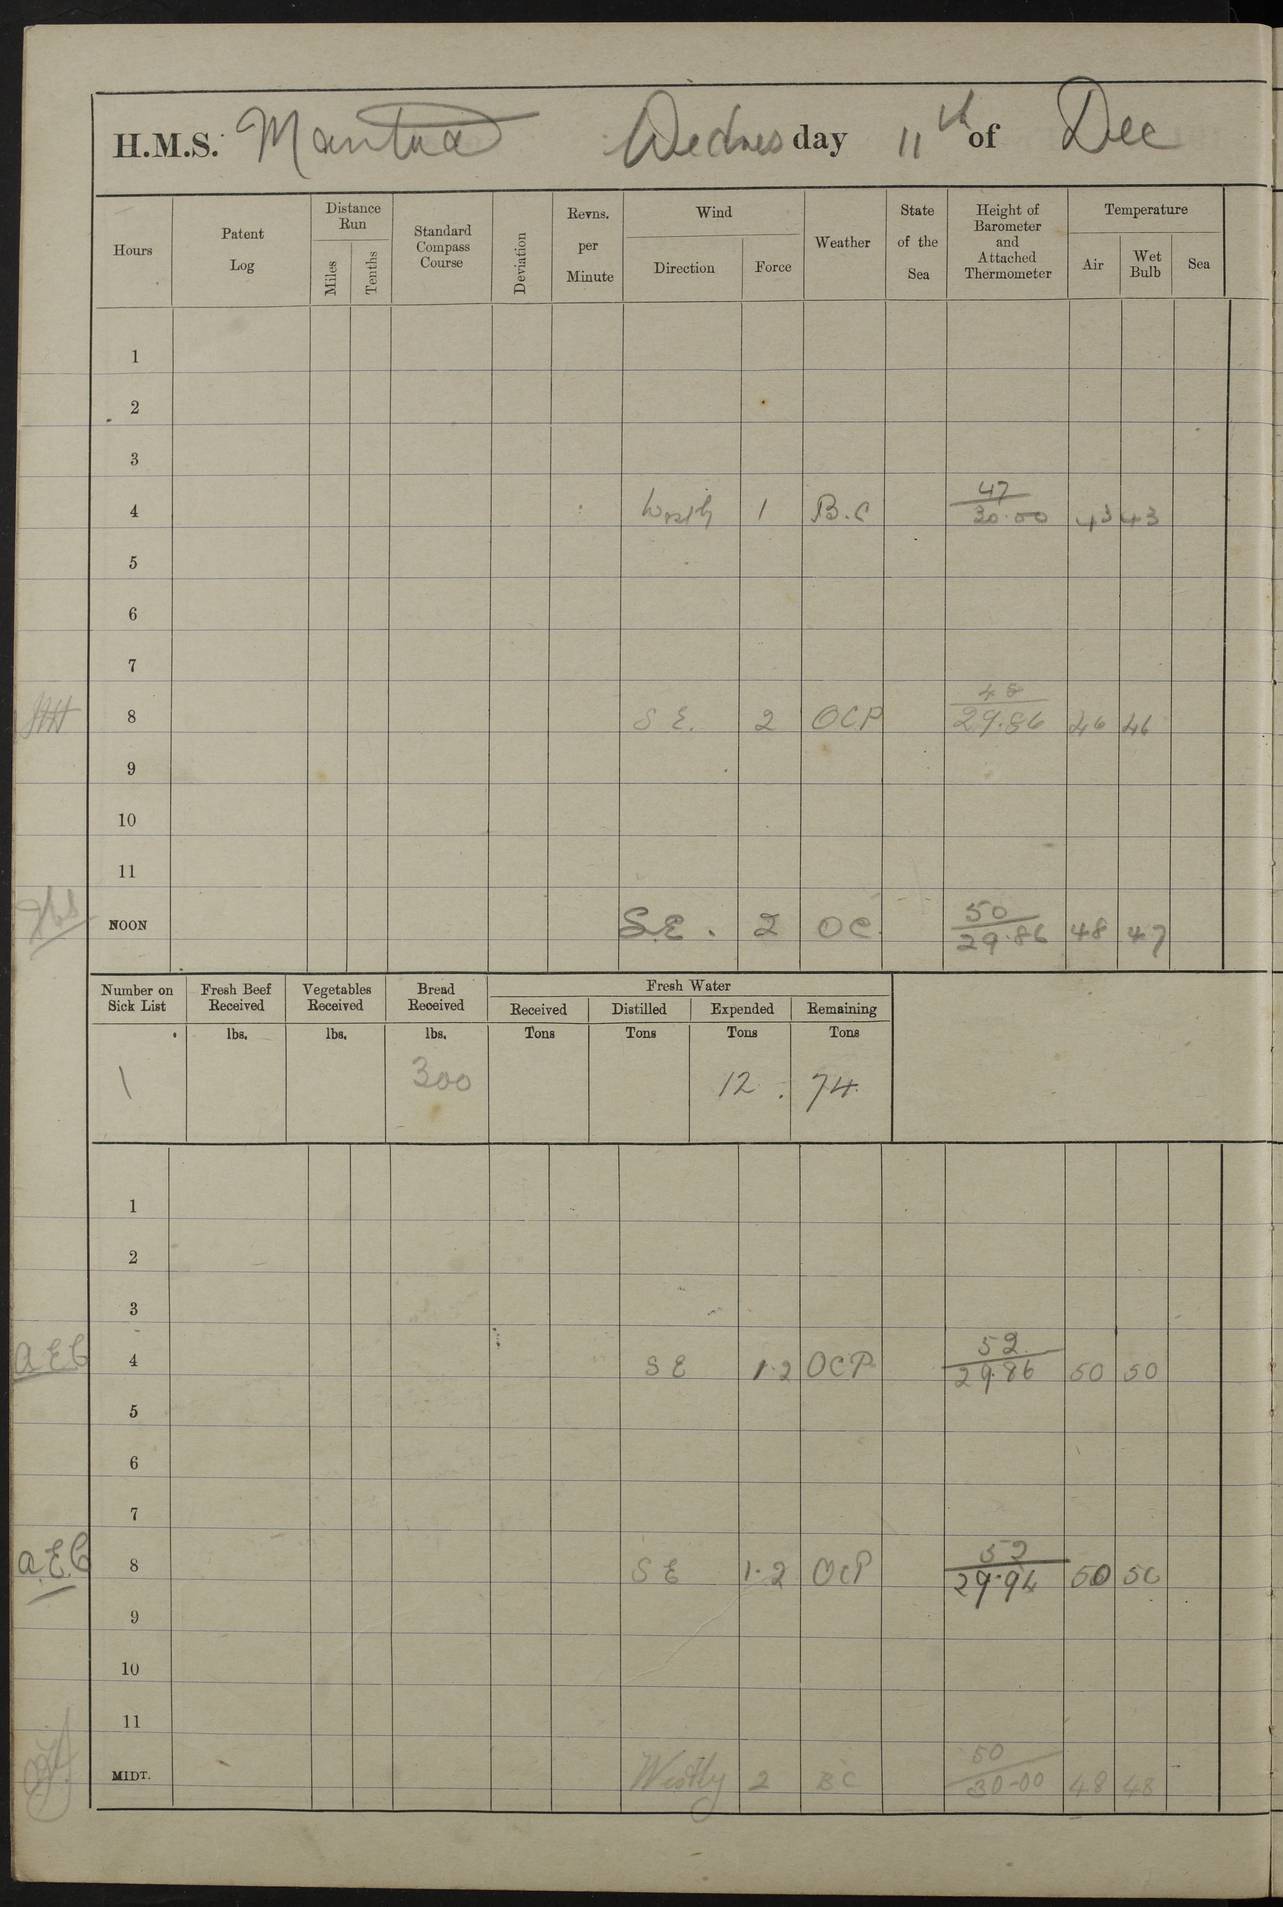 H.M.S. Mantua Wednesday 11th of Dec
Hours Patent Log Distance Run Miles Tenths Standard Compass Course Deviation Revns. per Minute Wind Direction Force Weather State of the Sea Height of Barometer and Attached Thermometer Temperature Air Wet Bulb Sea
1
2
3
4 1 B.C 47 / 30.00 43 43
5
6
7
8 S E. 2 OCP 48 / 29.86 46 46
9
10
11
NOON S.E. 2 OC. 50 / 29.86 48 47
Number on Sick List Fresh Beef Received Vegetables Received Bread Received Fresh Water
Received Distilled Expended Remaining
lbs. lbs. lbs. Tons Tons Tons Tons
1 300 12 74
1
2
3
AEC 4 S E 1.2 OCP 52 / 29.86 50 50
5
6
7
A.E.C 8 S E 1.2 OCP 52 / 29.94 50 50
9
10
11
MIDT. Westly 2 BC 50 / 30-00 48 48